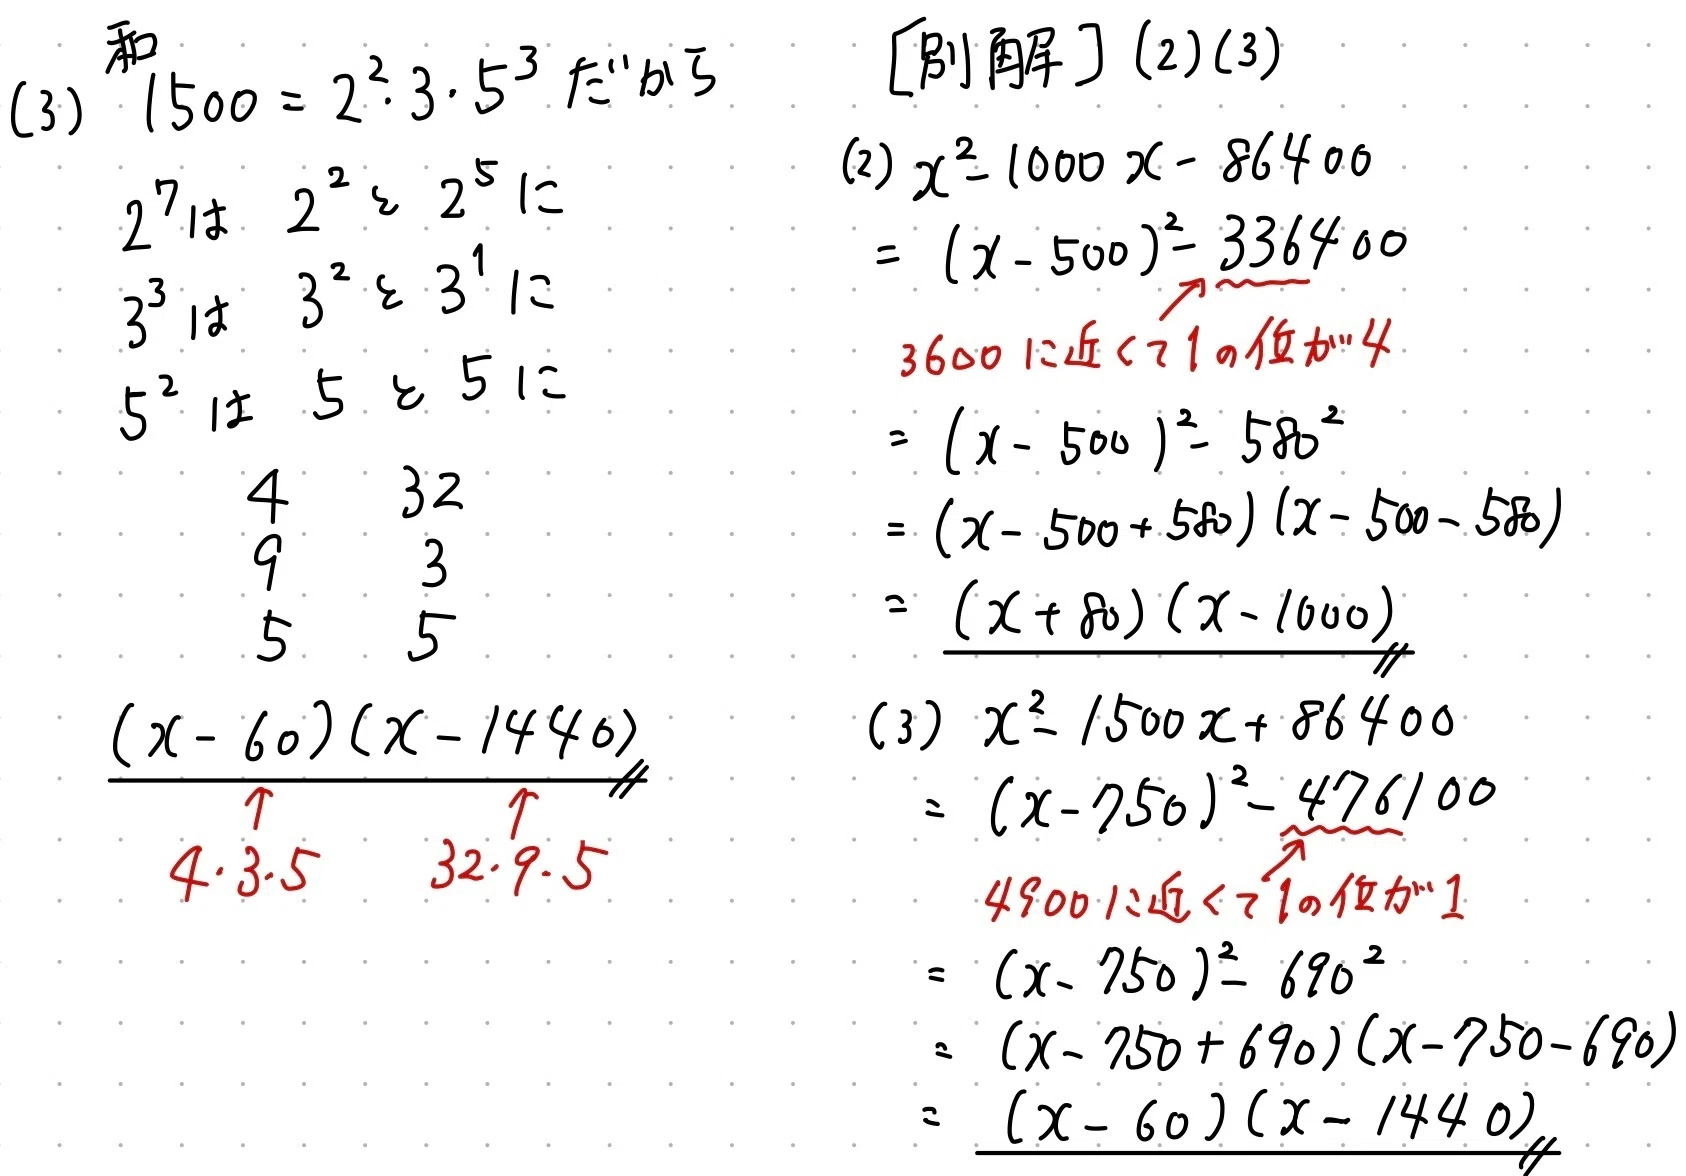 和
(3) 1500 = 2²・3・5³ だから
2⁷は 2² と 2⁵ に
3³は 3² と 3¹ に
5² は 5 と 5 に
4 32
9 3
5 5
(x - 60)(x - 1440)
↑ ↑
4・3・5 32・9・5
[別解] (2)(3)
(2) x² - 1000x - 86400
= (x - 500)² - 336400
3600 に近くて1の位が4
= (x - 500)² - 580²
= (x - 500 + 580)(x - 500 - 580)
= (x + 80)(x - 1000)
(3) x² - 1500x + 86400
= (x - 750)² - 476100
4900 に近くて1の位が1
= (x - 750)² - 690²
= (x - 750 + 690)(x - 750 - 690)
= (x - 60)(x - 1440)